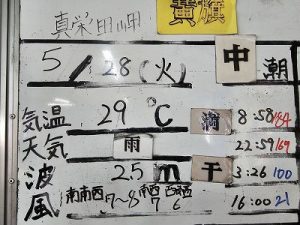 真栄田岬 黄旗
5/28(火) 中 朝
気温 29℃ 満 8:58 184
天気 雨 22:59 169
波 2.5m 干 3:26 100
風 南南西7〜8 南西7 西南西6 16:00 21